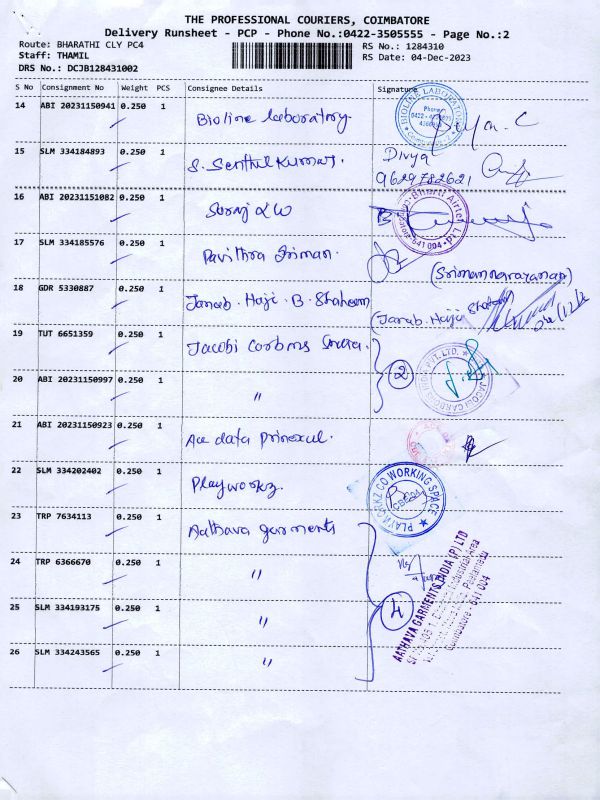 THE PROFESSIONAL COURIERS, COIMBATORE
Delivery Runsheet - PCP - Phone No.:0422-3505555 - Page No.:2
Route: BHARATHI CLY PC4
RS No.: 1284310
Staff: THAMIL
RS Date: 04-Dec-2023
DRS No.: DCJB128431002
S No Consignment No Weight PCS Consignee Details Signature
14 ABI 20231150941 0.250 1 Bioline Laboratory.
BIOLINE LABORATORY
Phone
15 SLM 334184893 0.250 1 S. Senthil Kumar. Divya
9629782621
16 ABI 20231151082 0.250 1 Suraj
Bharti Airtel
641 004
17 SLM 334185576 0.250 1 Pavithra Sriman.
(Srimannarayanan)
18 GDR 5330887 0.250 1 Janab. Haji. B. Shaheem
(Janab. Haji
19 TUT 6651359 0.250 1 Jacobi Carbons India.
2
JACOBI CARBONS INDIA PVT. LTD.
20 ABI 20231150997 0.250 1 "
21 ABI 20231150923 0.250 1 Ace data
22 SLM 334202402 0.250 1 Playworkz.
PLAYWORKZ CO WORKING SPACE
23 TRP 7634113 0.250 1 Aathava garments
24 TRP 6366670 0.250 1 "
4
AATHAVA GARMENTS INDIA (P) LTD
Industrial Area
Coimbatore - 641 004
25 SLM 334193175 0.250 1 "
26 SLM 334243565 0.250 1 "